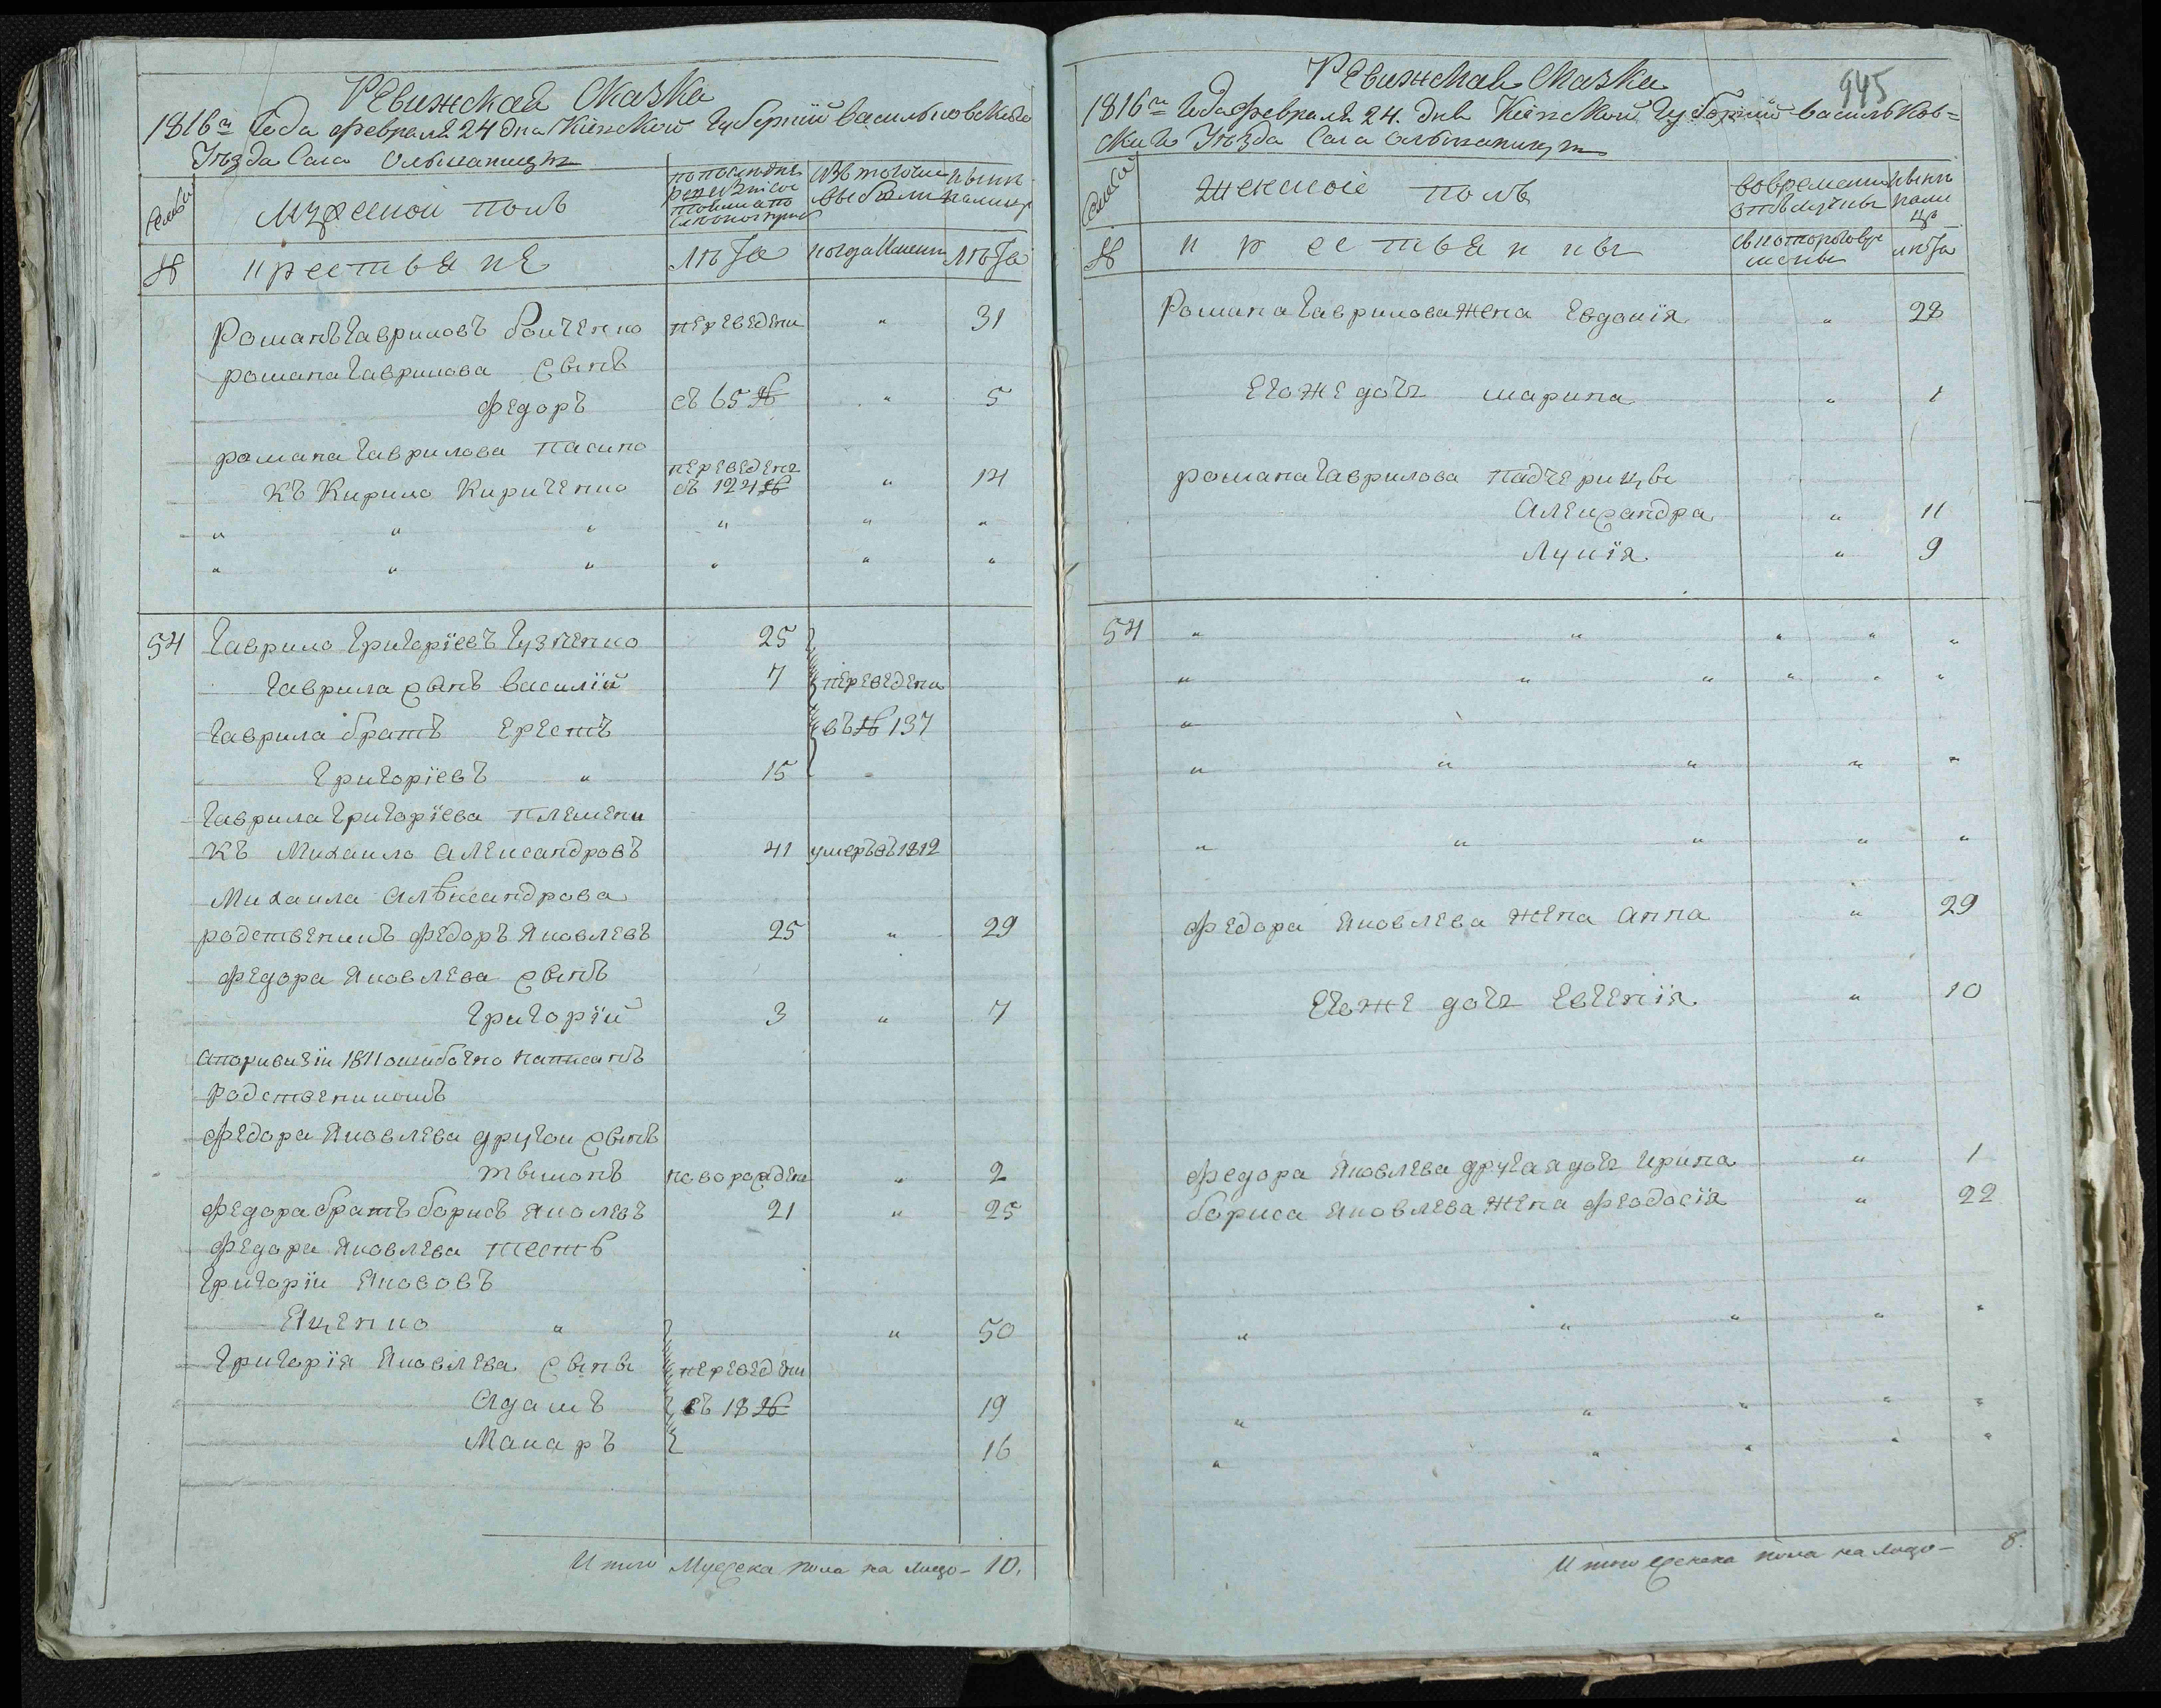 Ревижская Сказка
1816го Года Февраля 24 дна Кіевской Губернiи Васильковскаго
Уѣзда Села Ольшаницы
Семьи
Мужеской полъ
по последней ревизiи состояло
Изъ того числа выбыло
Нынѣ на лицо
№
крестьяне
лѣта
когда именно
лѣта
Романъ Гавриловъ Бойченко переведени " 31
романа Гаврилова сынъ
Федоръ съ 65 № " 5
романа Гаврилова пасыно
къ Кирило Кириченко переведенъ съ 124 № " 14
" " " " " "
" " " " " "
54 Гаврило Григорїевъ Гузненко 25
Гаврила сынъ василїй 7 переведени
Гаврила братъ Ерестъ въ № 137
Григорїевъ " 15 "
Гаврила Григорїева племени
къ Михаило Александровъ 41 умеръ въ 1812
Михаила Александрова
родственикъ Федоръ Яковлевъ 25 " 29
Федора Яковлева сынъ
Григорїй 3 " 7
а по ривизїи 1811 ошибочно написанъ
Родствеником
Федора Яковлева другои сынъ
Тимонъ новорожден " 2
Федора братъ борисъ Яколевъ 21 " 25
Федора Яковлева тесть
Григорїи Якововъ
Яценко " " 50
Григорїя Яковлева сыны переведени
Адамъ съ 18 № 19
Макаръ 16
Итого Мужеска пола на лицо - 10.
945
Ревижская Сказка
1816го Года Февраля 24. дня Кіевской Губернiи Васильков=
скаго Уѣзда Села Ольшаницы
Семьи
Женскоіе полъ
во временной отлучкѣ
Нынѣ на лицо
№
крестьянки
съ котораго времени
лѣта
Романа Гаврилова Жена Евдокїя " 28
Егоже дочь марина " 1
романа Гаврилова падчерицы
Александра " 11
Лукїя " 9
54 " " " " "
" " " " " "
"
" " " " "
" " " " "
Федора Яковлева жена анна " 29
Егоже дочь Евгенїя " 10
Федора Яковлева другая дочь Ирина " 1
бориса Яковлева Жена Феодосїя " 22
" " " " "
" " " " "
" " " " "
Итого Женска пола на лицо - 8.